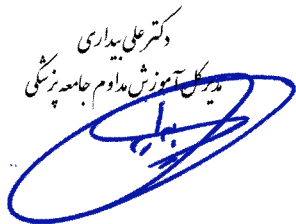 دکتر علی بیداری
مدیر کل آموزش مداوم جامعه پزشکی